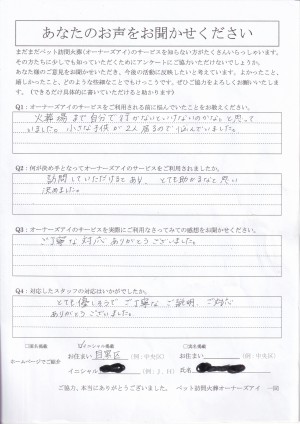 あなたのお声をお聞かせください
まだまだペット訪問火葬(オーナーズアイ)のサービスを知らない方がたくさんいらっしゃいます。
その方たちに少しでも知っていただくためにアンケートにご協力いただけないでしょうか。
あなた様のご意見をお聞かせいただき、今後の活動に反映したいと考えています。よかったこと、
嬉しかったこと、どのような些細なことでもけっこうです。ぜひご協力をよろしくお願いいたしま
す。(できるだけ具体的に書いていただけると助かります)
Q1:オーナーズアイのサービスをご利用される前に悩んでいたことをお教えください。
火葬場まで自分で行かないといけないのかなと思って
いました。小さな子供が2人居るので悩んでいました。
Q2:何が決め手となってオーナーズアイのサービスをご利用されましたか。
訪問していただけるとあり、とても助かるなと思い
決めました。
Q3:オーナーズアイのサービスを実際にご利用なさってみての感想をお聞かせください。
ご丁寧な対応ありがとうございました。
Q4:対応したスタッフの対応はいかがでしたか。
とても優しそうでご丁寧な、ご説明、ご対応
ありがとうございました。
ホームページでご紹介
イニシャル掲載
お住まい 目黒区 (例:中央区)
お住まい (例:中央区)
イニシャル (例:J.N)
氏名
ご協力、本当にありがとうございました。 ペット訪問火葬オーナーズアイ